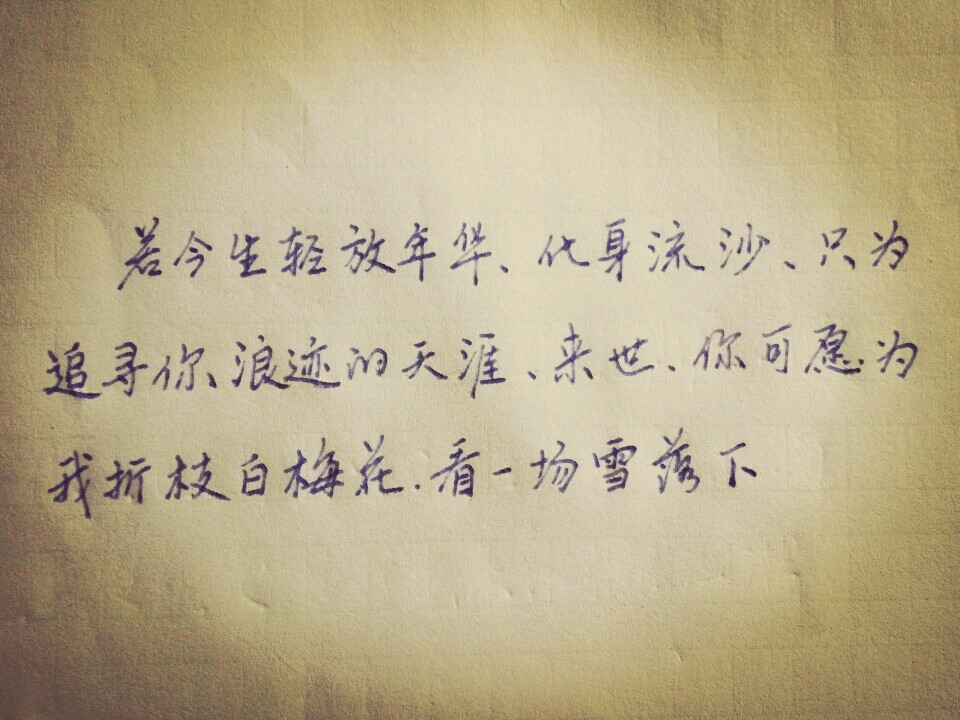 若今生轻放年华、化身流沙、只为
追寻你、浪迹的天涯、来世、你可愿为
我折枝白梅花.看一场雪落下